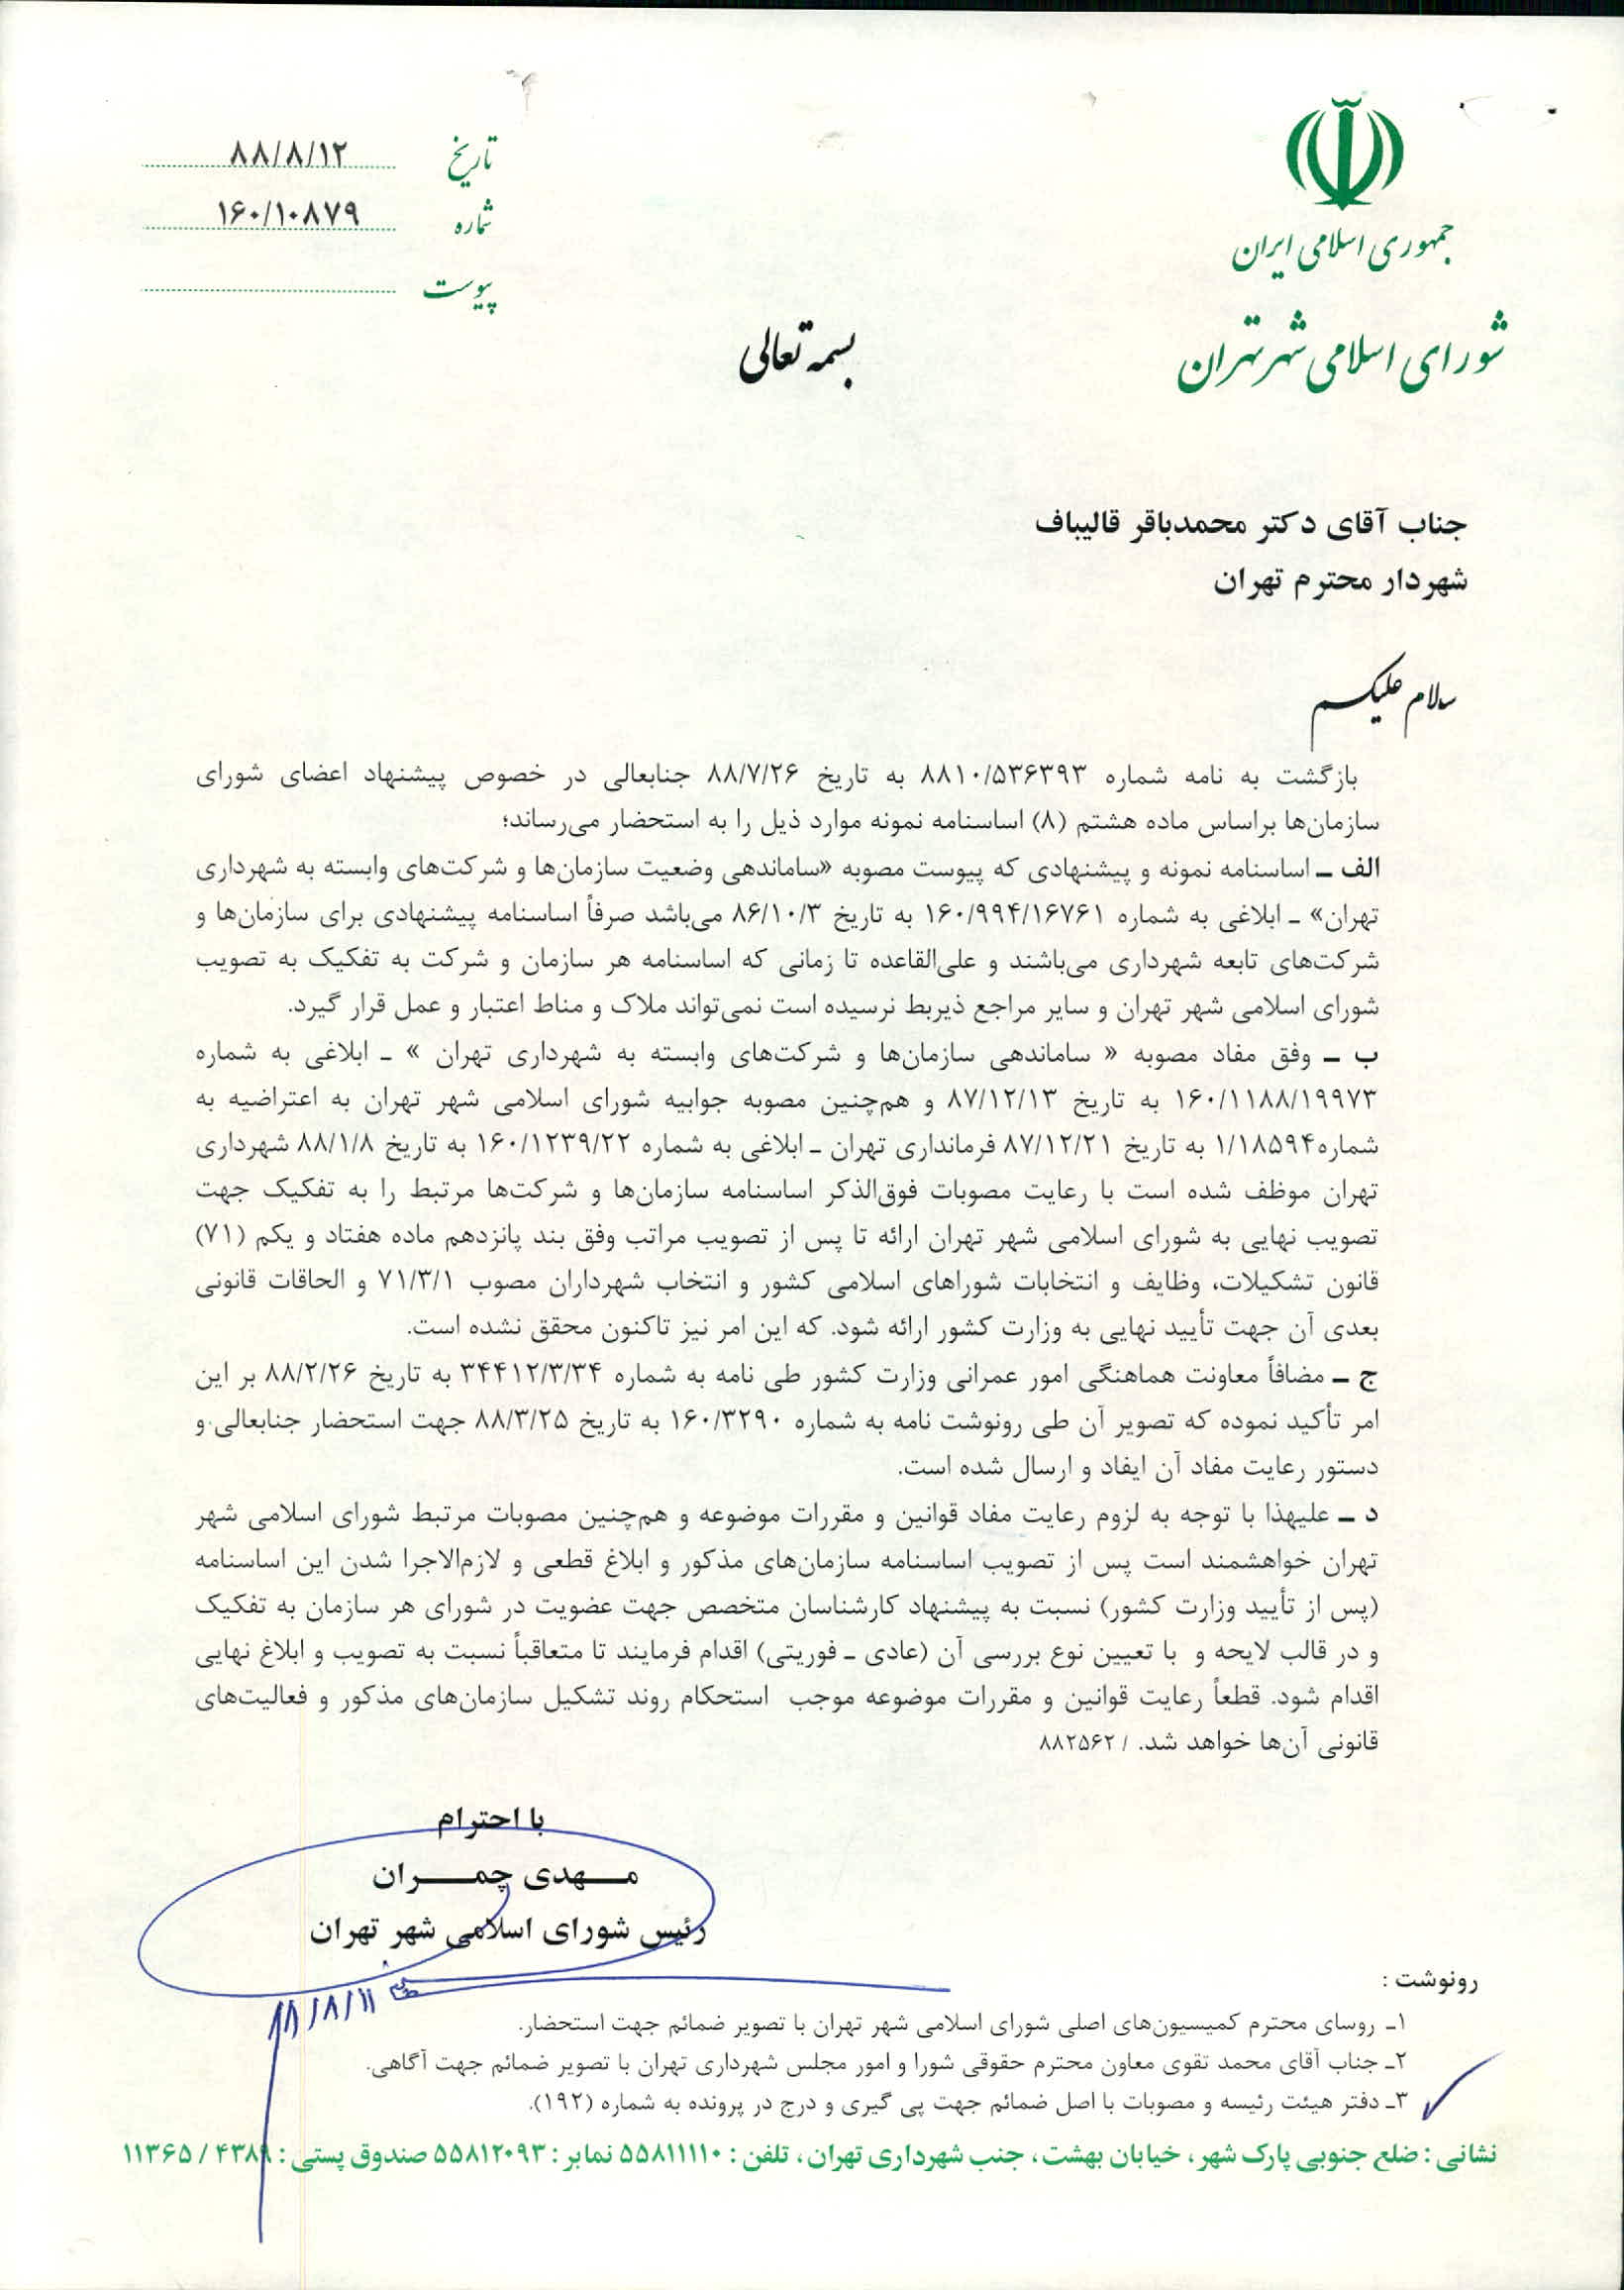 جمهوری اسلامی ایران
شورای اسلامی شهر تهران
تاریخ ۸۸/۸/۱۲
شماره ۱۶۰/۱۰۸۷۹
پیوست
بسمه تعالی
جناب آقای دکتر محمدباقر قالیباف
شهردار محترم تهران
سلام علیکم
بازگشت به نامه شماره ۸۸۱۰/۵۳۶۳۹۳ به تاریخ ۸۸/۷/۲۶ جنابعالی در خصوص پیشنهاد اعضای شورای
سازمان‌ها براساس ماده هشتم (۸) اساسنامه نمونه موارد ذیل را به استحضار می‌رساند؛
الف ـ اساسنامه نمونه و پیشنهادی که پیوست مصوبه «ساماندهی وضعیت سازمان‌ها و شرکت‌های وابسته به شهرداری
تهران» ـ ابلاغی به شماره ۱۶۰/۹۹۴/۱۶۷۶۱ به تاریخ ۸۶/۱۰/۳ می‌باشد صرفاً اساسنامه پیشنهادی برای سازمان‌ها و
شرکت‌های تابعه شهرداری می‌باشند و علی‌القاعده تا زمانی که اساسنامه هر سازمان و شرکت به تفکیک به تصویب
شورای اسلامی شهر تهران و سایر مراجع ذیربط نرسیده است نمی‌تواند ملاک و مناط اعتبار و عمل قرار گیرد.
ب ـ وفق مفاد مصوبه « ساماندهی سازمان‌ها و شرکت‌های وابسته به شهرداری تهران » ـ ابلاغی به شماره
۱۶۰/۱۱۸۸/۱۹۹۷۳ به تاریخ ۸۷/۱۲/۱۳ و هم‌چنین مصوبه جوابیه شورای اسلامی شهر تهران به اعتراضیه به
شماره۱/۱۸۵۹۴ به تاریخ ۸۷/۱۲/۲۱ فرمانداری تهران ـ ابلاغی به شماره ۱۶۰/۱۲۳۹/۲۲ به تاریخ ۸۸/۱/۸ شهرداری
تهران موظف شده است با رعایت مصوبات فوق‌الذکر اساسنامه سازمان‌ها و شرکت‌ها مرتبط را به تفکیک جهت
تصویب نهایی به شورای اسلامی شهر تهران ارائه تا پس از تصویب مراتب وفق بند پانزدهم ماده هفتاد و یکم (۷۱)
قانون تشکیلات، وظایف و انتخابات شوراهای اسلامی کشور و انتخاب شهرداران مصوب ۷۱/۳/۱ و الحاقات قانونی
بعدی آن جهت تأیید نهایی به وزارت کشور ارائه شود. که این امر نیز تاکنون محقق نشده است.
ج ـ مضافاً معاونت هماهنگی امور عمرانی وزارت کشور طی نامه به شماره ۳۴۴۱۲/۳/۳۴ به تاریخ ۸۸/۲/۲۶ بر این
امر تأکید نموده که تصویر آن طی رونوشت نامه به شماره ۱۶۰/۳۲۹۰ به تاریخ ۸۸/۳/۲۵ جهت استحضار جنابعالی و
دستور رعایت مفاد آن ایفاد و ارسال شده است.
د ـ علیهذا با توجه به لزوم رعایت مفاد قوانین و مقررات موضوعه و هم‌چنین مصوبات مرتبط شورای اسلامی شهر
تهران خواهشمند است پس از تصویب اساسنامه سازمان‌های مذکور و ابلاغ قطعی و لازم‌الاجرا شدن این اساسنامه
(پس از تأیید وزارت کشور) نسبت به پیشنهاد کارشناسان متخصص جهت عضویت در شورای هر سازمان به تفکیک
و در قالب لایحه و با تعیین نوع بررسی آن (عادی ـ فوریتی) اقدام فرمایند تا متعاقباً نسبت به تصویب و ابلاغ نهایی
اقدام شود. قطعاً رعایت قوانین و مقررات موضوعه موجب استحکام روند تشکیل سازمان‌های مذکور و فعالیت‌های
قانونی آن‌ها خواهد شد. / ۸۸۲۵۶۲
با احترام
مـهدی چمـران
رئیس شورای اسلامی شهر تهران
۸۸/۸/۱۱
رونوشت :
۱ـ روسای محترم کمیسیون‌های اصلی شورای اسلامی شهر تهران با تصویر ضمائم جهت استحضار.
۲ـ جناب آقای محمد تقوی معاون محترم حقوقی شورا و امور مجلس شهرداری تهران با تصویر ضمائم جهت آگاهی.
۳ـ دفتر هیئت رئیسه و مصوبات با اصل ضمائم جهت پی گیری و درج در پرونده به شماره (۱۹۲).
نشانی : ضلع جنوبی پارک شهر، خیابان بهشت، جنب شهرداری تهران، تلفن : ۵۵۸۱۱۱۱۰ نمابر : ۵۵۸۱۲۰۹۳ صندوق پستی : ۴۳۸۹ / ۱۱۳۶۵